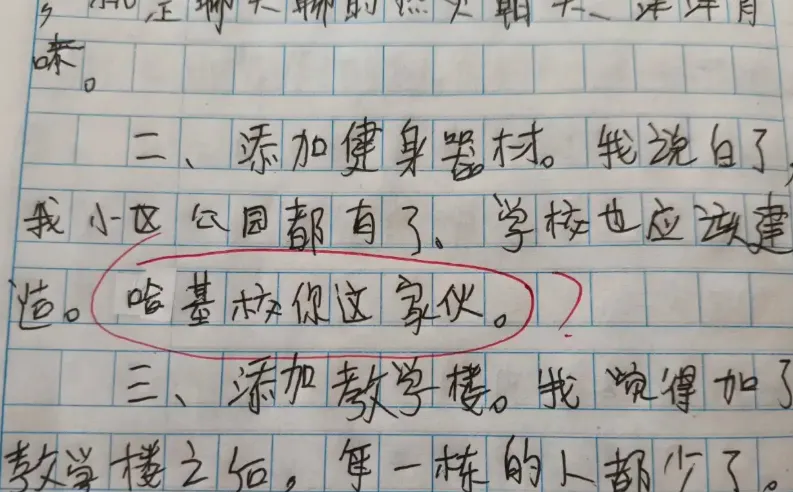 味。
二、添加健身器材。我说白了,
我小区公园都有了、学校也应该建
造。哈基校你这家伙。?
三、添加教学楼。我觉得加了
教学楼之后,每一栋的人都少了。